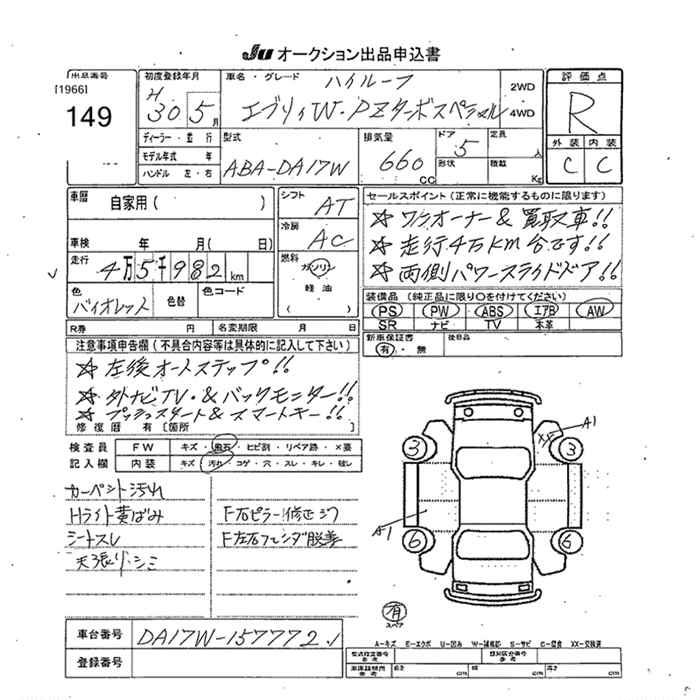 JU オークション出品申込書
出品番号 初度登録年月 車名・グレード ハイルーフ 2WD 評価点
[1966] H30 5月 エブリイW・PZターボスペシャル 4WD R
149
ディーラー・並行 型式 排気量 ドア 定員 外装 内装
モデル年式 年 ABA-DA17W 660 5 人 C C
ハンドル 左・右 CC 形状 積載 Kg
車歴 自家用( ) シフト AT セールスポイント(正常に機能するものに限ります)
冷房 AC ☆ワンオーナー&買取車!!
車検 年 月( 日) ☆走行4万km台です!!
走行 4万5千982km 燃料 ガソリン ☆両側パワースライドドア!!
軽油
色 色替 色コード ( ) 装備品(純正品に限り○を付けてください)
バイオレット PS PW ABS エアB AW
SR ナビ TV 本革
R券 円 名変期限 月 日 新車保証書 後日品
有・無
注意事項申告欄(不具合内容等は具体的に記入して下さい)
☆左後オートステップ!!
☆外ナビTV・&バックモニター!!
☆プッシュスタート&スマートキー!!
修復歴 有〔箇所
検査員 FW キズ・飛石・ヒビ割・リペア跡・×要
記入欄 内装 キズ・汚れ・コゲ・穴・スレ・キレ・破レ
カーペット汚れ
Hライト黄ばみ F右ピラー修正ジワ
シートスレ F左右フェンダ脱着
天張り・シミ
A1 XP
3 3
A1
6 6
有
スペア
車台番号 DA17W-157772
登録番号
A-キズ E-エクボ U-凹み W-補修跡 S-サビ C-腐食 XX-交換済
型式指定番号 参考 類別区分番号 参考
車庫証明用 参考 長さ cm 幅 cm 高さ cm